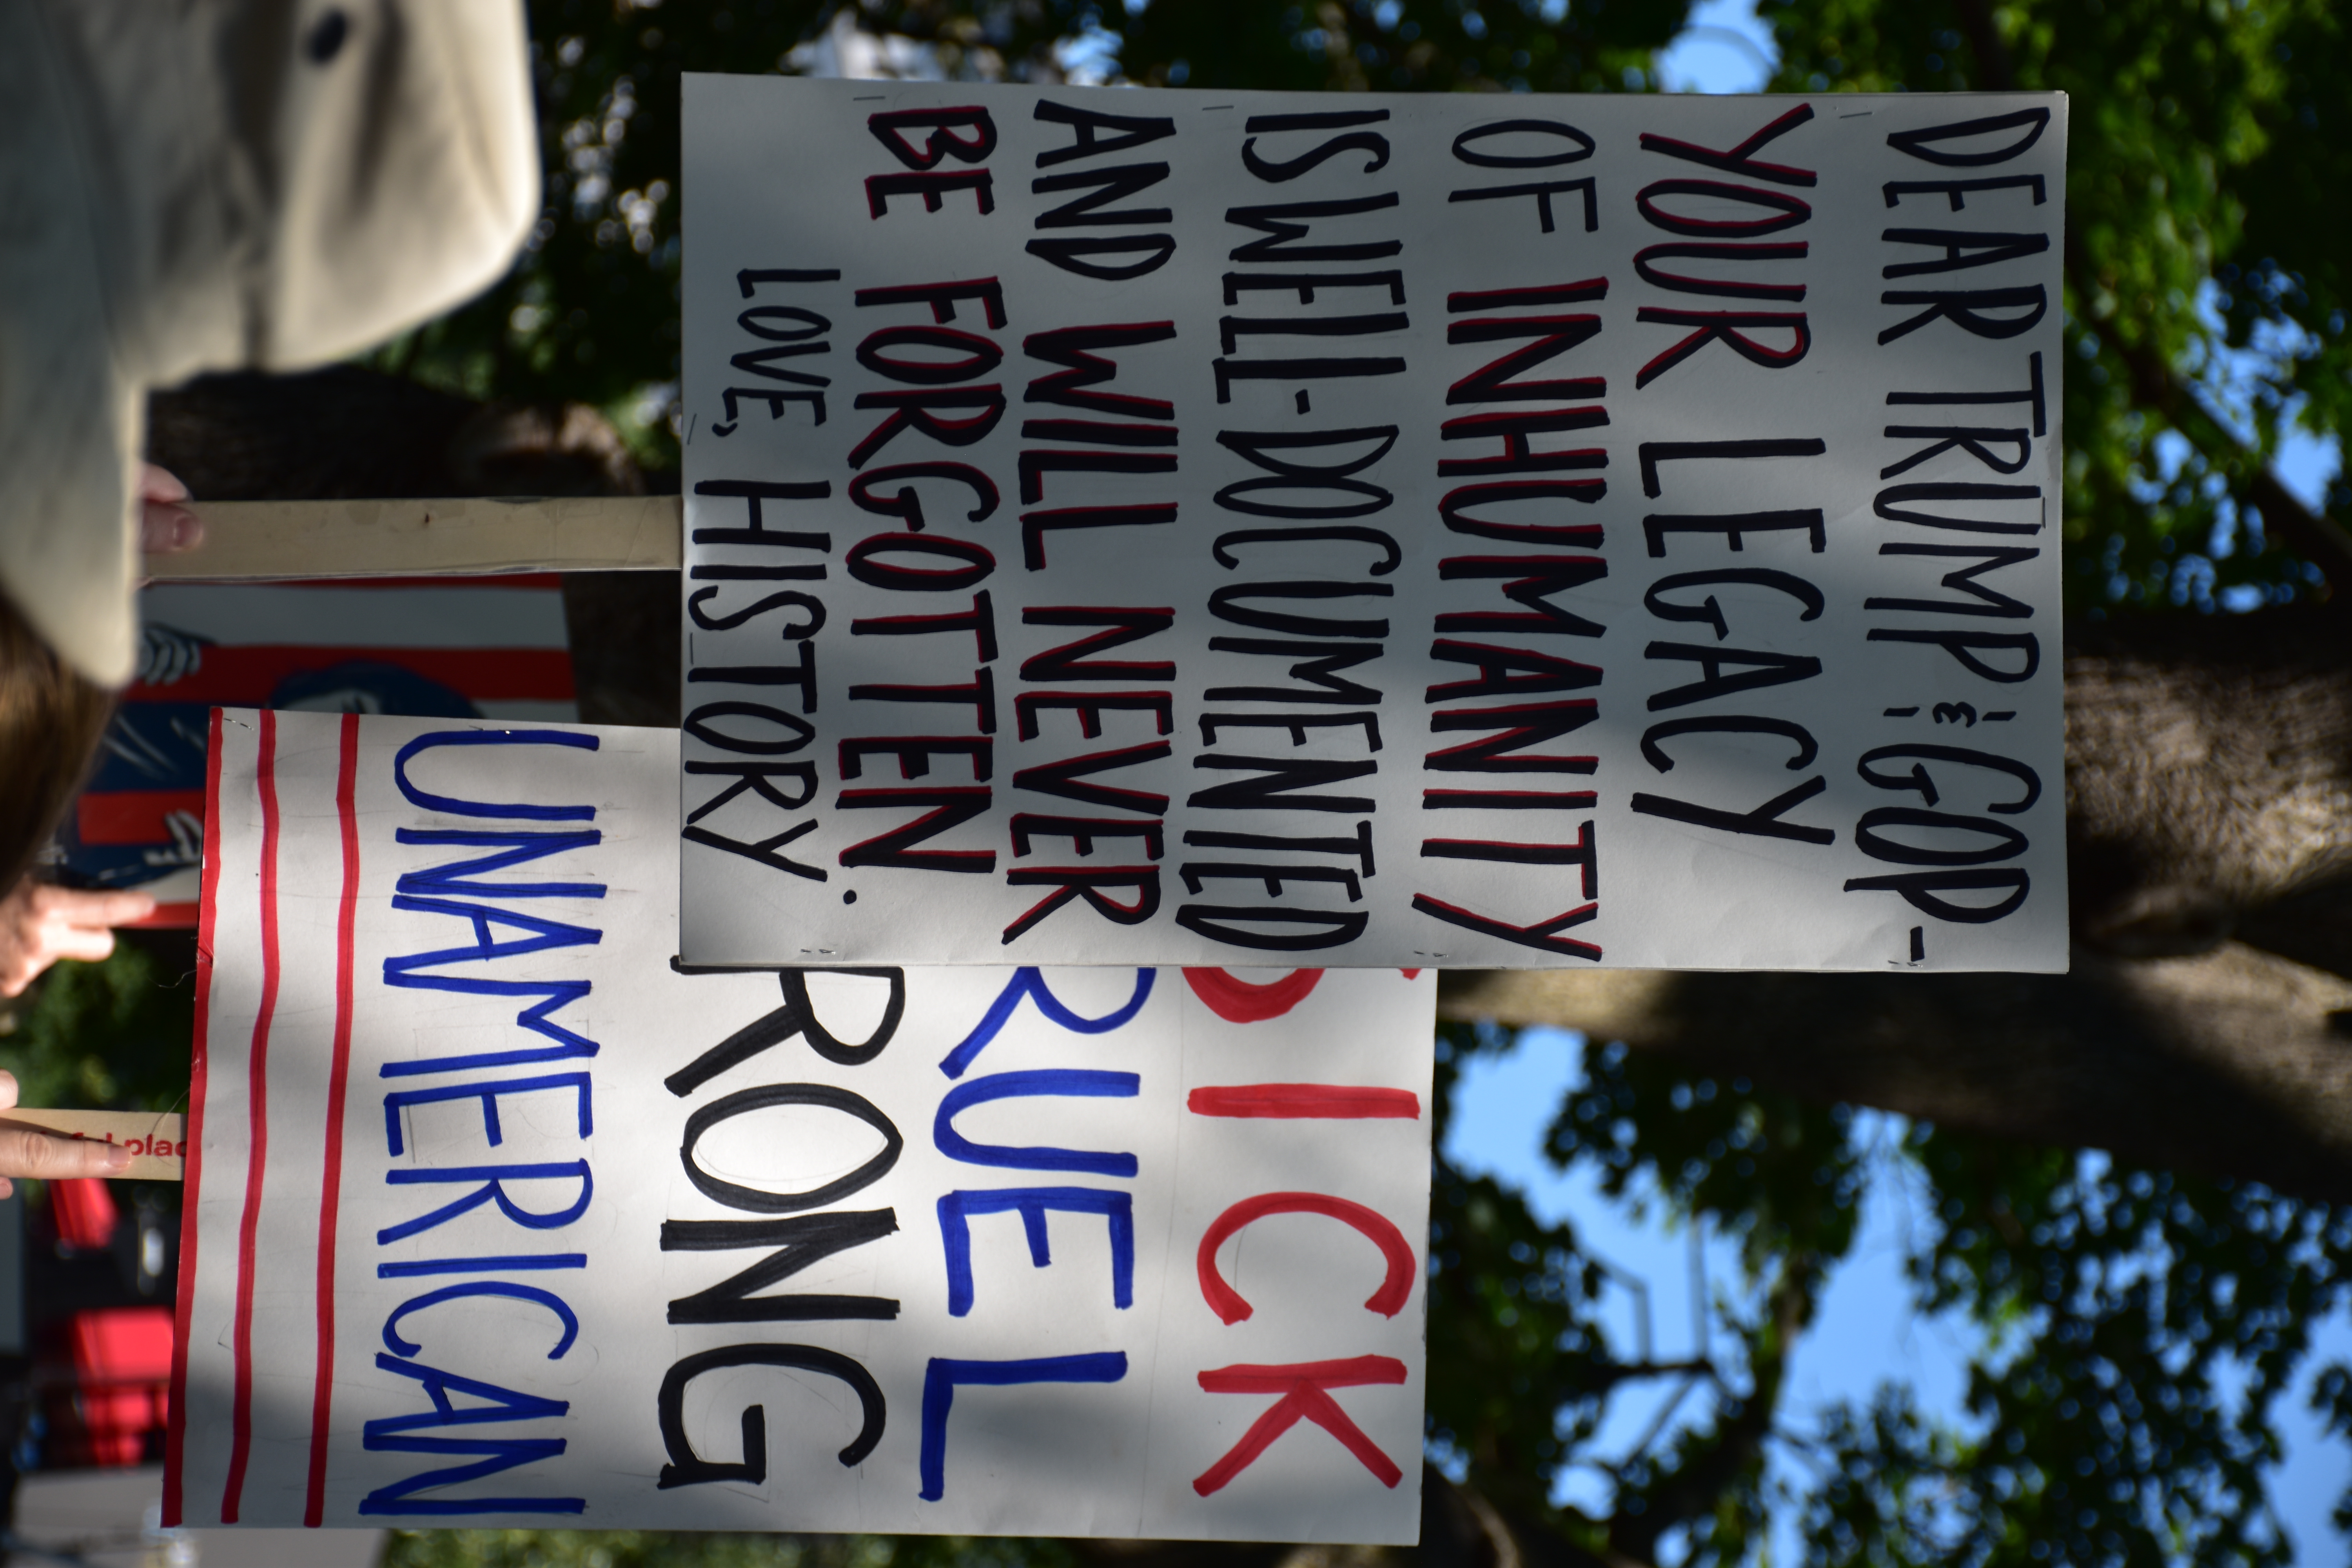 DEAR TRUMP & GOP-
YOUR LEGACY
OF INHUMANITY
IS WELL-DOCUMENTED
AND WILL NEVER
BE FORGOTTEN.
LOVE, HISTORY.
SICK
RUEL
RONG
UNAMERICAN